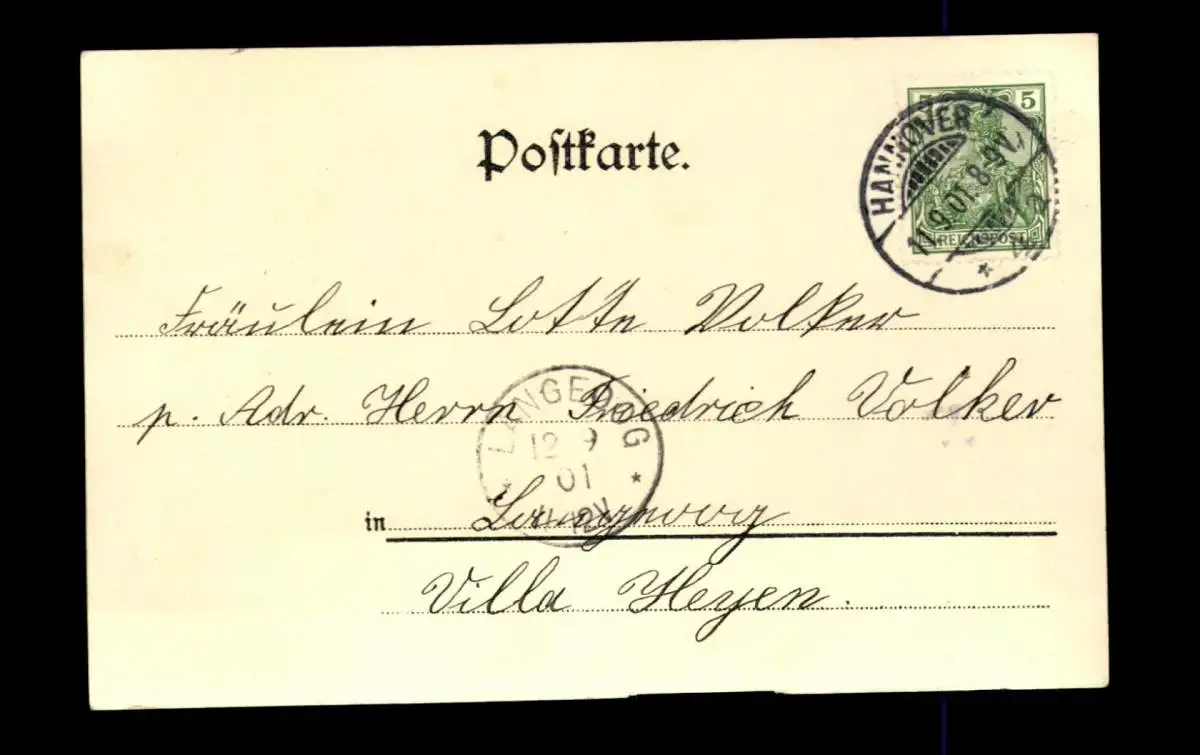 Postkarte.
5 5
HANNOVER
11.9.01. 8-9V.
REICHSPOST
Fräulein Lotte Volker
p. Adr. Herrn Friedrich Volker
LANGEOOG
12 9
01
11-12V
in Langeoog
Villa Heyen.